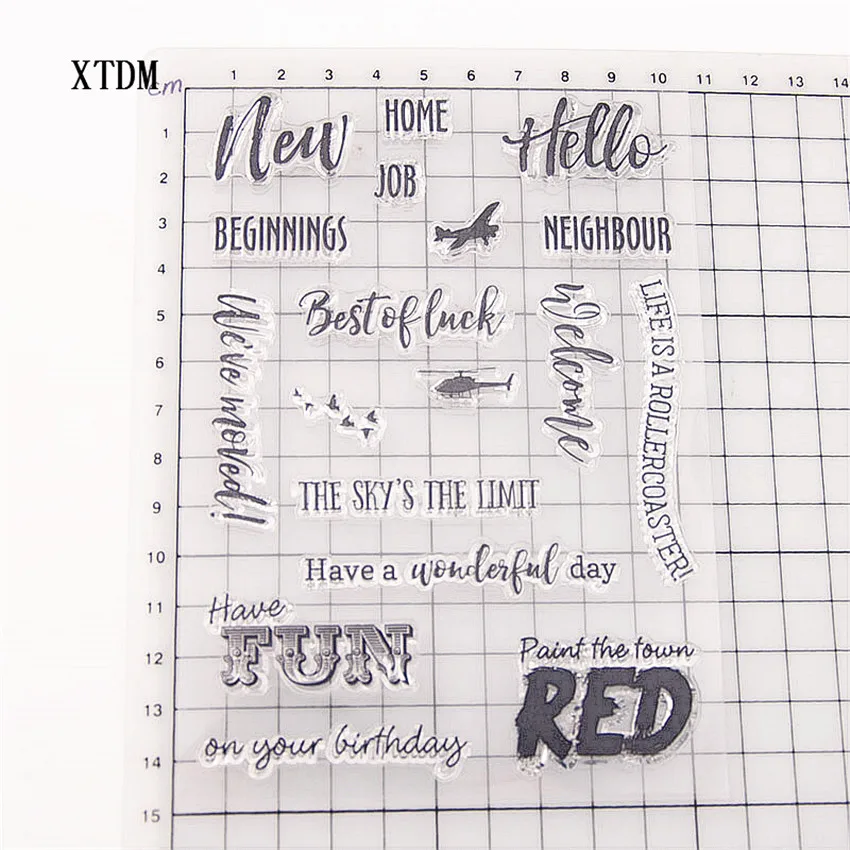 XTDM
cm
1 2 3 4 5 6 7 8 9 10 11 12 13 14
1
2
3
4
5
6
7
8
9
10
11
12
13
14
15
New
HOME
Hello
JOB
BEGINNINGS
NEIGHBOUR
We've moved!
Best of luck
Welcome
LIFE IS A ROLLERCOASTER!
THE SKY'S THE LIMIT
Have a wonderful day
Have
FUN
on your birthday
Paint the town
RED